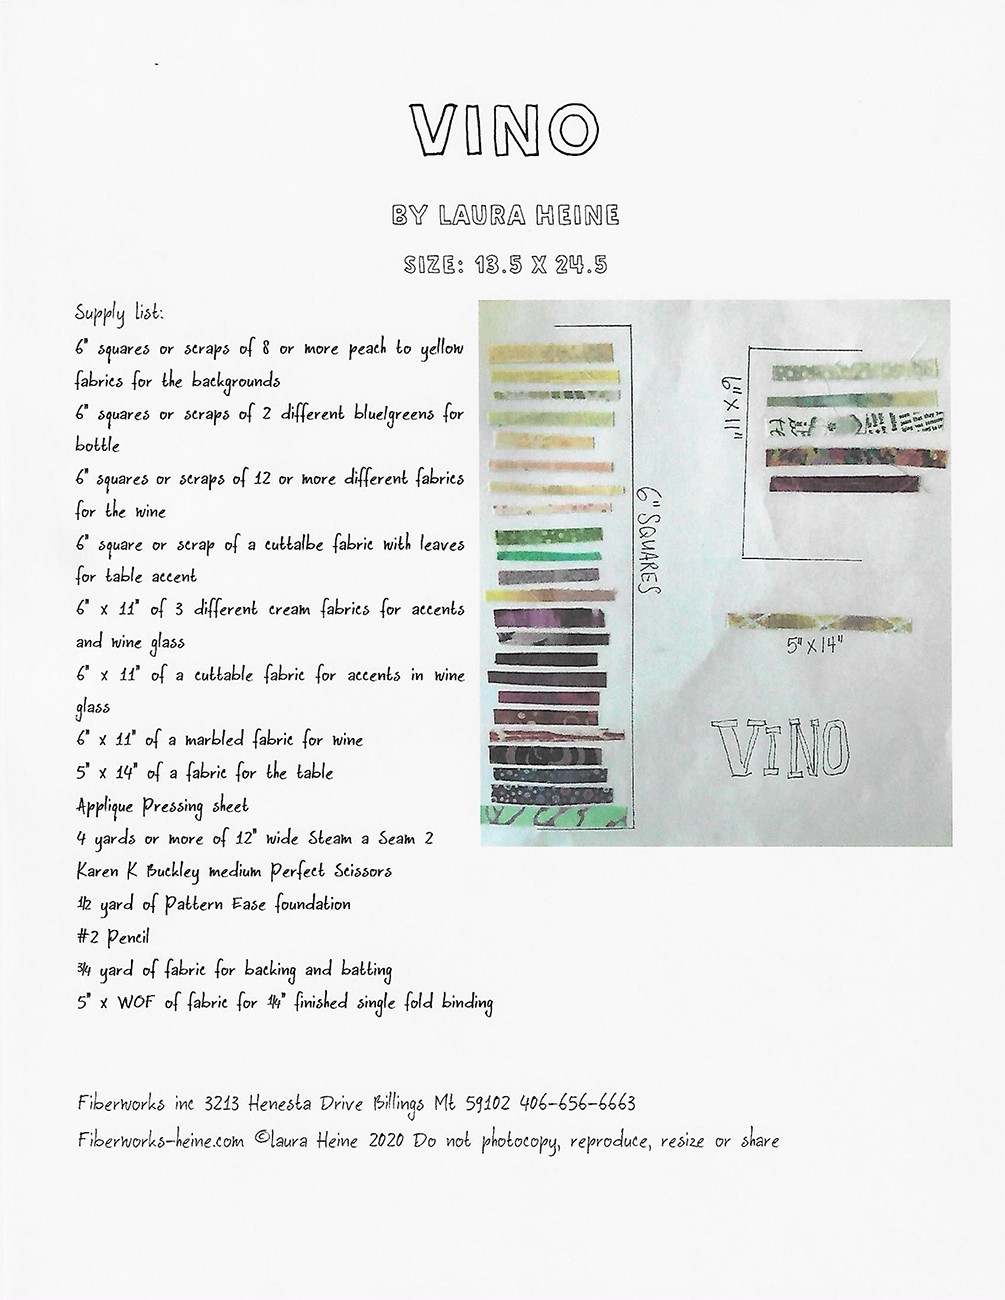 VINO
BY LAURA HEINE
SIZE: 13.5 X 24.5
Supply list:
6" squares or scraps of 8 or more peach to yellow
fabrics for the backgrounds
6" squares or scraps of 2 different blue/greens for
bottle
6" squares or scraps of 12 or more different fabrics
for the wine
6" square or scrap of a cuttalbe fabric with leaves
for table accent
6" x 11" of 3 different cream fabrics for accents
and wine glass
6" x 11" of a cuttable fabric for accents in wine
glass
6" x 11" of a marbled fabric for wine
5" x 14" of a fabric for the table
Applique Pressing sheet
4 yards or more of 12" wide Steam a Seam 2
Karen K Buckley medium Perfect Scissors
1/2 yard of Pattern Ease foundation
#2 Pencil
3/4 yard of fabric for backing and batting
5" x WOF of fabric for 1/4" finished single fold binding
6" SQUARES
6" X 11"
5" X 14"
VINO
Fiberworks inc 3213 Henesta Drive Billings Mt 59102 406-656-6663
Fiberworks-heine.com ©laura Heine 2020 Do not photocopy, reproduce, resize or share